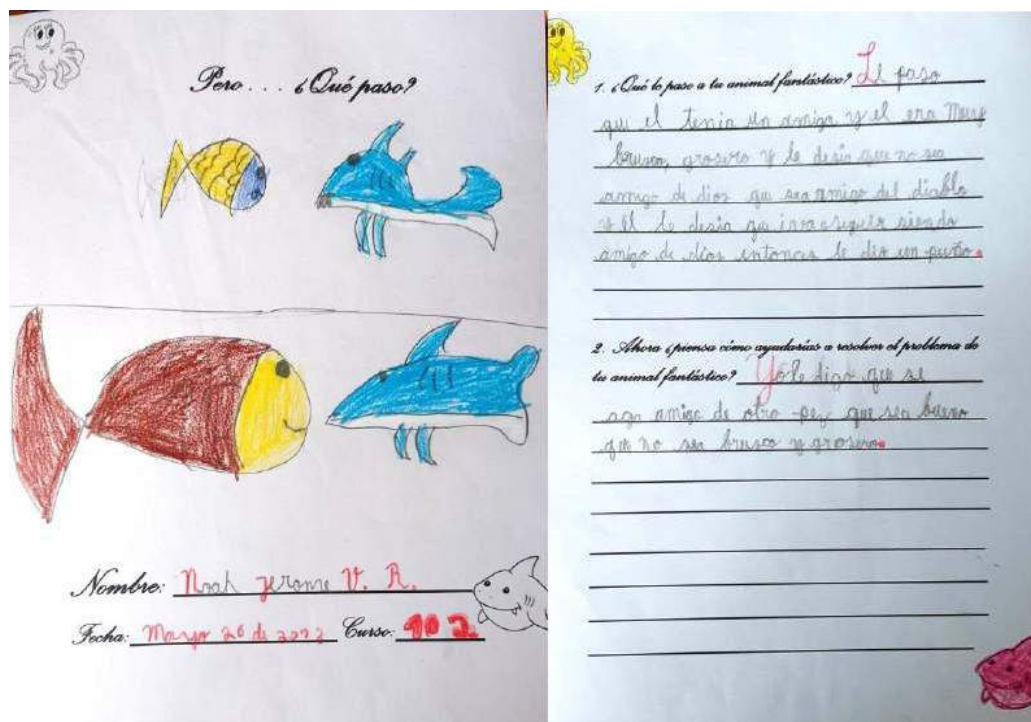 Pero . . . ¿Qué paso?
Nombre: Noah Jerome V. R.
Fecha: Mayo 26 de 2022 Curso: 102
1. ¿Qué le paso a tu animal fantástico? Le paso
que el tenia un amigo y el era muy
brusco, grosero y le desia que no sea
amigo de dios que sea amigo del diablo
y el le desia que iva a seguir siendo
amigo de dios entonces le dio un puño.
2. Ahora ¿piensa cómo ayudarías a resolver el problema de
tu animal fantástico? Yo le digo que se
aga amigo de otro pez que sea bueno
que no sea brusco y grosero.